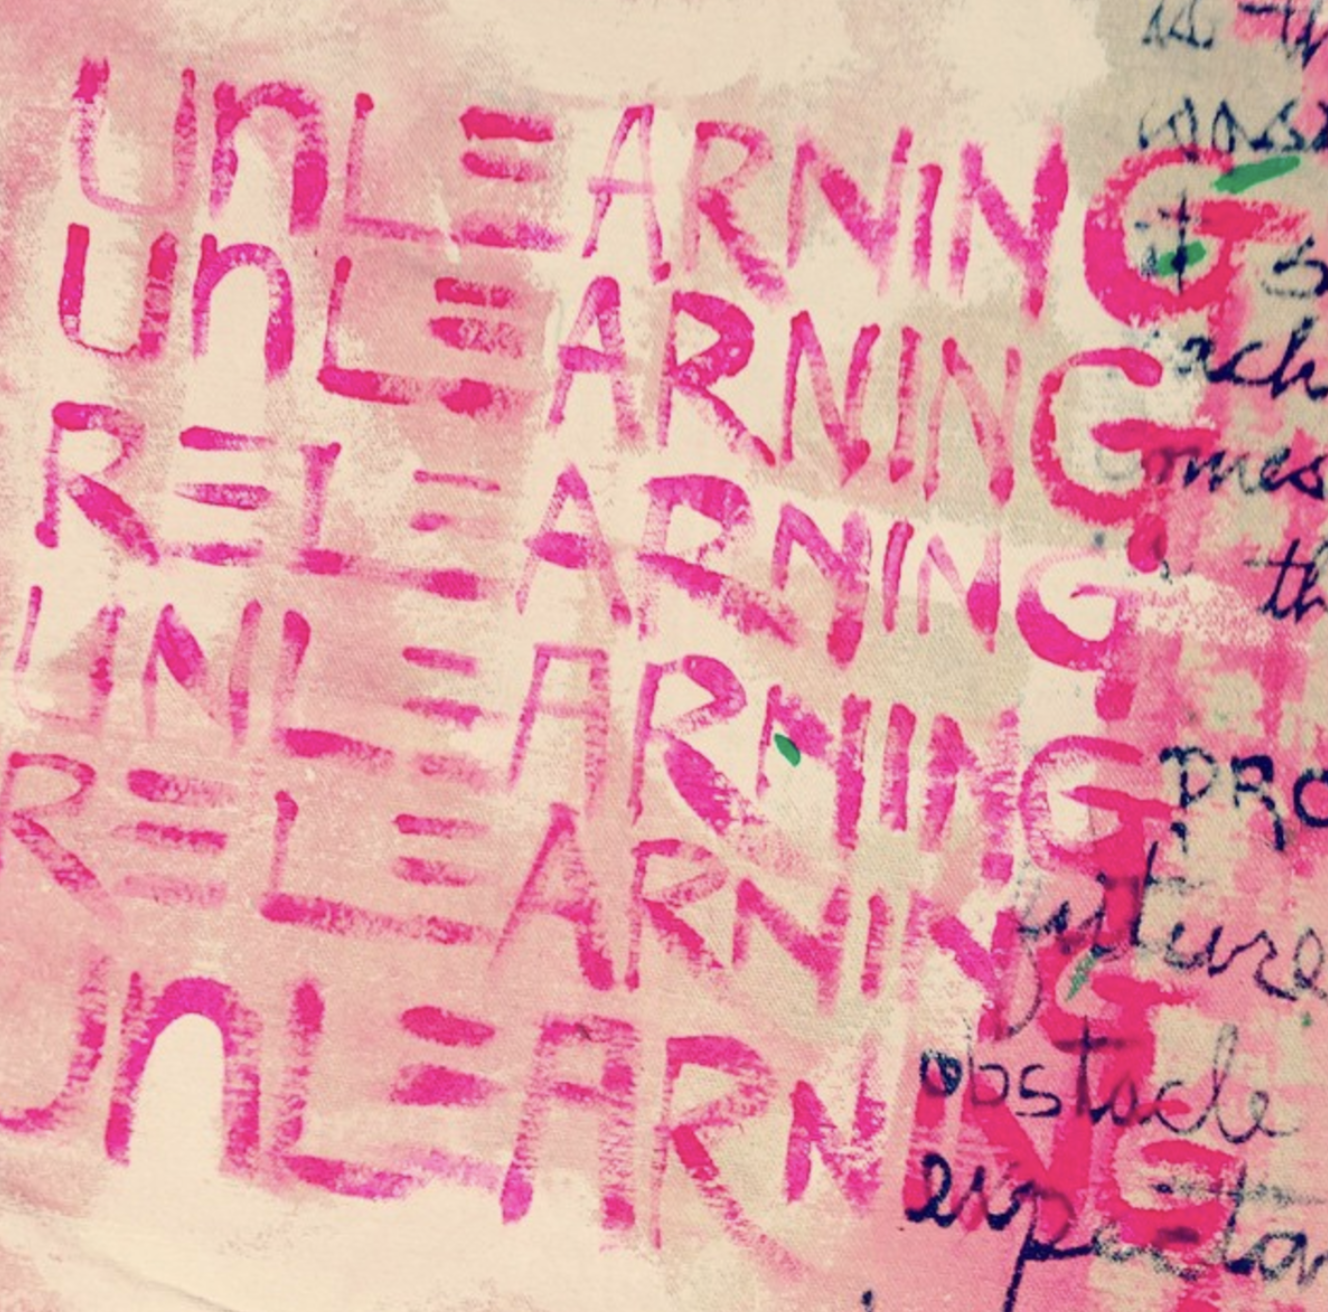 UnLEARNING
UnLEARNING
RELEARNING
UNLEARNING
RELEARNING
UnLEARNING
it
future
obstacle